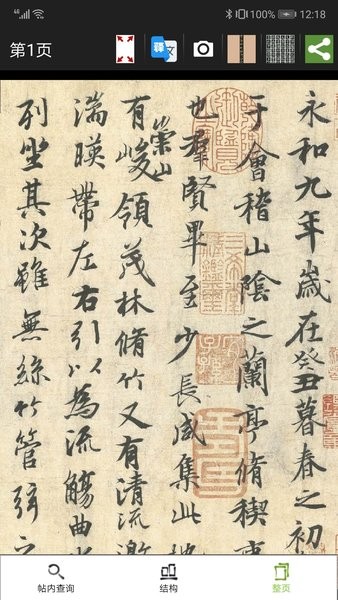 100% 12:18
第1页
永和九年歲在癸丑暮春之初
于會稽山陰之蘭亭脩禊事
也羣賢畢至少長咸集此地
崇山
有峻領茂林脩竹又有清流激
湍暎帶左右引以為流觴曲水
列坐其次雖無絲竹管弦之
帖内查询
结构
整页